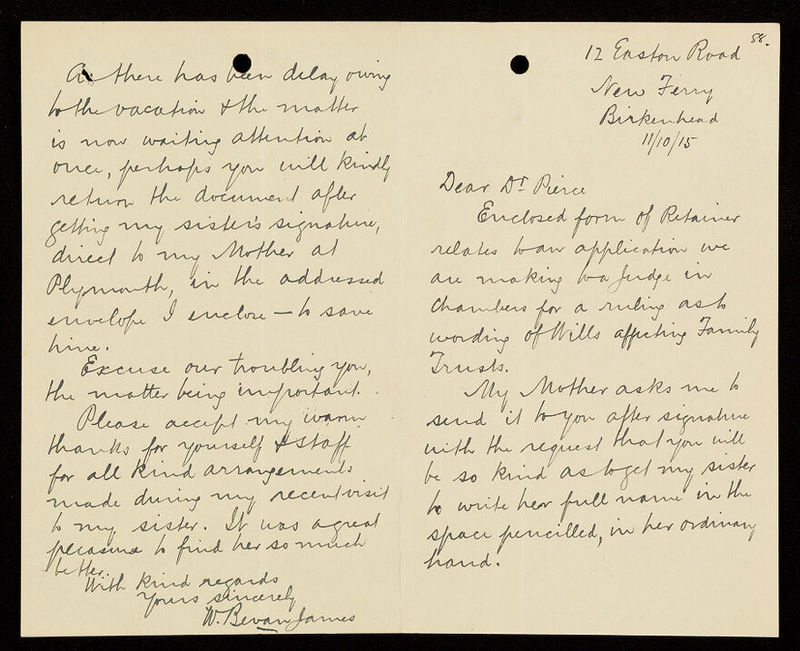 58.
12 Easton Road
New Ferry
Birkenhead
11/10/15
Dear Dr Pierce
Enclosed form of Retainer
relates to an application we
are making to a Judge in
Chambers for a ruling as to
wording of Wills affecting Family
Trusts.
My Mother asks me to
send it to you after signature
with the request that you will
be so kind as to get my sister
to write her full name in the
space pencilled, in her ordinary
hand.
As there has been delay owing
to the vacation & the matter
is now waiting attention at
once, perhaps you will kindly
return the document after
getting my sister's signature,
direct to my Mother at
Plymouth, in the addressed
envelope I enclose — to save
time.
Excuse our troubling you,
the matter being important.
Please accept my warm
thanks for yourself & staff
for all kind arrangements
made during my recent visit
to my sister. It was a great
pleasure to find her so much
better.
With kind regards
Yours sincerely
W. Bevan James